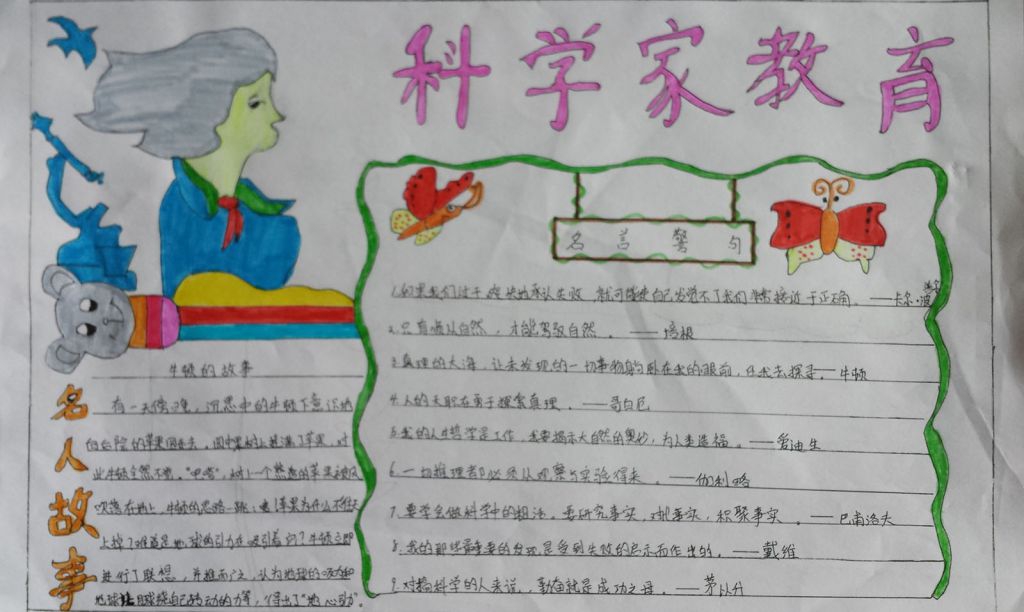 科学家教育
名言警句
1.如果我们过于爽快地承认失败，就可能使自己发觉不了我们非常接近于正确。——卡尔·波普尔
2.只有顺从自然，才能驾驭自然。——培根
3.真理的大海，让未发现的一切事物躺卧在我的眼前，任我去探寻。——牛顿
4.人的天职在勇于探索真理。——哥白尼
5.我的人生哲学是工作，我要揭示大自然的奥妙，为人类造福。——爱迪生
6.一切推理都必须从观察与实验得来。——伽利略
7.要学会做科学中的粗活。要研究事实，对比事实，积聚事实。——巴甫洛夫
8.我的那些最重要的发现是受到失败的启示而作出的。——戴维
9.对搞科学的人来说，勤奋就是成功之母。——茅以升
名人故事
牛顿的故事
有一天傍晚，沉思中的牛顿下意识地
向自院的苹果园走去，园中果树上挂满了苹果，对
此牛顿全然不觉。"吧嗒"，树上一个熟透的苹果被风
吹落在地上，牛顿的思路一跳：苹果为什么不往天
上掉？难道是地球的引力在吸引着它？牛顿立即
进行了联想，并推而广之，认为地球的吸力和
地球绕自己转动的力等，得出了"地心引力"。